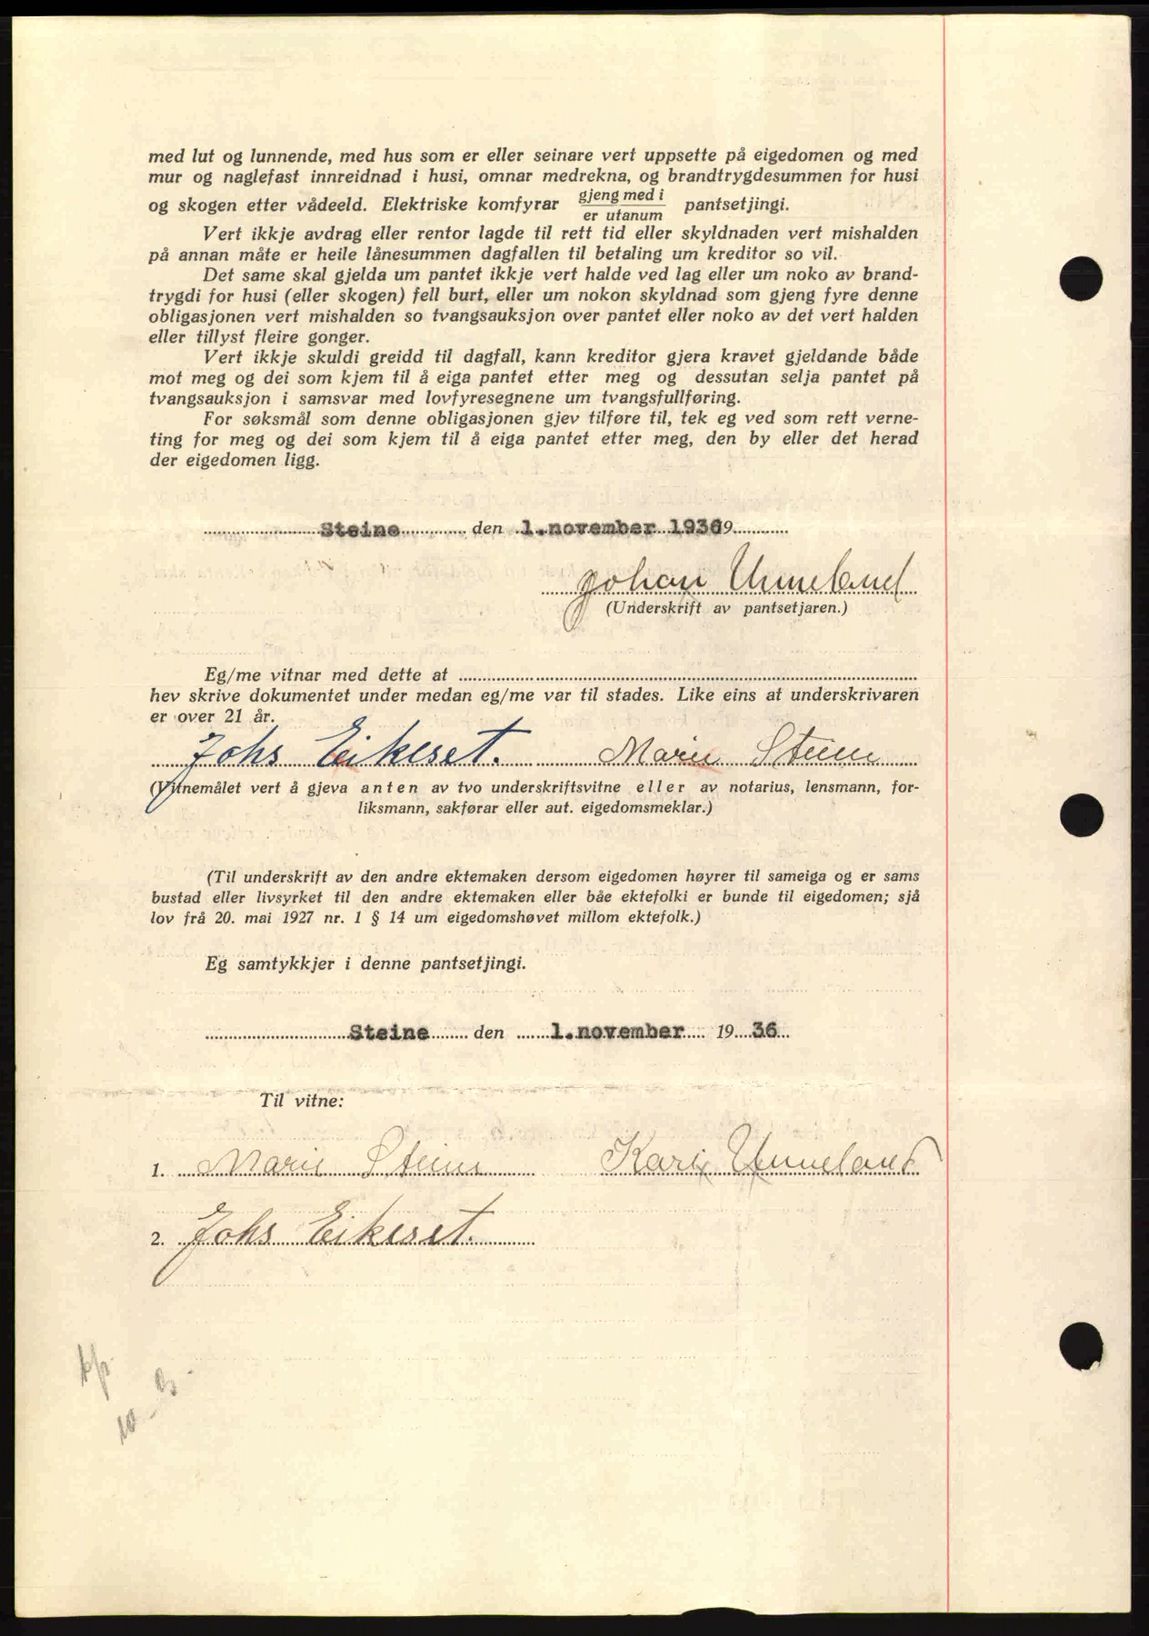 med lut og lunnende, med hus som er eller seinare vert uppsette på eigedomen og med
mur og naglefast innreidnad i husi, omnar medrekna, og brandtrygdesummen for husi
og skogen etter vådeeld. Elektriske komfyrar gjeng med i / er utanum pantsetjingi.
Vert ikkje avdrag eller rentor lagde til rett tid eller skyldnaden vert mishalden
på annan måte er heile lånesummen dagfallen til betaling um kreditor so vil.
Det same skal gjelda um pantet ikkje vert halde ved lag eller um noko av brand-
trygdi for husi (eller skogen) fell burt, eller um nokon skyldnad som gjeng fyre denne
obligasjonen vert mishalden so tvangsauksjon over pantet eller noko av det vert halden
eller tillyst fleire gonger.
Vert ikkje skuldi greidd til dagfall, kann kreditor gjera kravet gjeldande både
mot meg og dei som kjem til å eiga pantet etter meg og dessutan selja pantet på
tvangsauksjon i samsvar med lovfyresegnene um tvangsfullføring.
For søksmål som denne obligasjonen gjev tilføre til, tek eg ved som rett verne-
ting for meg og dei som kjem til å eiga pantet etter meg, den by eller det herad
der eigedomen ligg.
Steine den 1. november 1936 19
Johan Unneland
(Underskrift av pantsetjaren.)
Eg/me vitnar med dette at
hev skrive dokumentet under medan eg/me var til stades. Like eins at underskrivaren
er over 21 år.
Johs Eikeset. Marie Steine
(Vitnemålet vert å gjeva anten av tvo underskriftsvitne eller av notarius, lensmann, for-
liksmann, sakførar eller aut. eigedomsmeklar.)
(Til underskrift av den andre ektemaken dersom eigedomen høyrer til sameiga og er sams
bustad eller livsyrket til den andre ektemaken eller båe ektefolki er bunde til eigedomen; sjå
lov frå 20. mai 1927 nr. 1 § 14 um eigedomshøvet millom ektefolk.)
Eg samtykkjer i denne pantsetjingi.
Steine den 1. november 19 36
Til vitne:
1. Marie Steine Kari Unneland
2. Johs Eikeset.